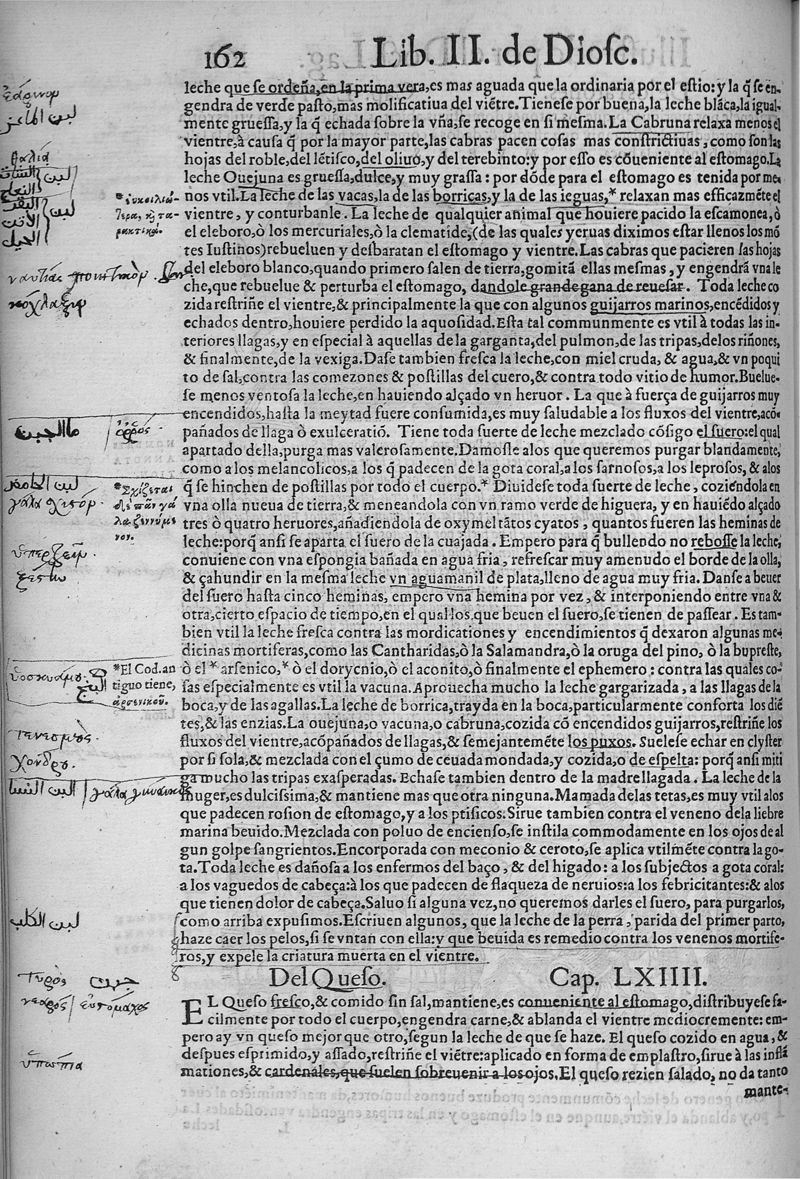 162 Lib. II. de Diosc.
leche que se ordeña, en la prima vera, es mas aguada que la ordinaria por el estio: y la q̃ se en-
gendra de verde pasto, mas molificatiua del viẽtre. Tienese por buena, la leche blãca, la igual-
mente gruessa, y la q̃ echada sobre la vña, se recoge en si mesma. La Cabruna relaxa menos el
vientre, à causa q̃ por la mayor parte, las cabras pacen cosas mas constrictiuas, como son las
hojas del roble, del lẽtisco, del oliuo, y del terebinto: y por esso es cõueniente al estomago. La
leche Ouejuna es gruessa, dulce, y muy grassa: por dõde para el estomago es tenida por me-
nos vtil. La leche de las vacas, la de las borricas, y la de las ieguas, * relaxan mas efficazmẽte el
vientre, y conturbanle. La leche de qualquier animal que houiere pacido la escamonea, ò
el eleboro, ò los mercuriales, ò la clematide, (de las quales yeruas diximos estar llenos los mõ
tes Iustinos) rebueluen y desbaratan el estomago y vientre. Las cabras que pacieren las hojas
del eleboro blanco, quando primero salen de tierra, gomitã ellas mesmas, y engendrã vna le
che, que rebuelue & perturba el estomago, dandole grande gana de reuesar. Toda leche co
zida restriñe el vientre, & principalmente la que con algunos guijarros marinos, encẽdidos y
echados dentro, houiere perdido la aquosidad. Esta tal communmente es vtil à todas las in-
teriores llagas, y en especial à aquellas de la garganta, del pulmon, de las tripas, delos riñones,
& finalmente, de la vexiga. Dase tambien fresca la leche, con miel cruda, & agua, & vn poqui
to de sal, contra las comezones & postillas del cuero, & contra todo vitio de humor. Buelue-
se menos ventosa la leche, en hauiendo alçado vn heruor. La que à fuerça de guijarros muy
encendidos, hasta la meytad fuere consumida, es muy saludable a los fluxos del vientre, acõ-
pañados de llaga ò exulceratiõ. Tiene toda suerte de leche mezclado cõsigo el suero: el qual
apartado della, purga mas valerosamente. Damosle alos que queremos purgar blandamente,
como a los melancolicos, a los q̃ padecen de la gota coral, a los sarnosos, a los leprosos, & alos
q̃ se hinchen de postillas por todo el cuerpo. * Diuidese toda suerte de leche, coziẽdola en
vna olla nueua de tierra, & meneandola con vn ramo verde de higuera, y en hauiẽdo alçado
tres ò quatro heruores, añadiendola de oxymel tãtos cyatos, quantos fueren las heminas de
leche: porq̃ ansi se aparta el suero de la cuajada. Empero para q̃ bullendo no rebosse la leche,
conuiene con vna espongia bañada en agua fria, refrescar muy amenudo el borde de la olla,
& çahundir en la mesma leche vn aguamanil de plata, lleno de agua muy fria. Danse a beuer
del suero hasta cinco heminas, empero vna hemina por vez, & interponiendo entre vna &
otra, cierto espacio de tiempo, en el qual los que beuen el suero, se tienen de passear. Es tam-
bien vtil la leche fresca contra las mordicationes y encendimientos q̃ dexaron algunas me-
dicinas mortiferas, como las Cantharidas, ò la Salamandra, ò la oruga del pino, ò la bupreste,
*El Cod. an
tiguo tiene,
ò el * arsenico, * ò el dorycnio, ò el aconito, ò finalmente el ephemero: contra las quales co-
sas especialmente es vtil la vacuna. Aprouecha mucho la leche gargarizada, a las llagas de la
boca, y de las agallas. La leche de borrica, trayda en la boca, particularmente conforta los diẽ
tes, & las enzias. La ouejuna, o vacuna, o cabruna, cozida cõ encendidos guijarros, restriñe los
fluxos del vientre, acõpañados de llagas, & semejantemẽte los puxos. Suelese echar en clyster
por si sola, & mezclada con el çumo de ceuada mondada, y cozida, o de espelta: porq̃ ansi miti
ga mucho las tripas exasperadas. Echase tambien dentro de la madre llagada. La leche de la
muger, es dulcissima, & mantiene mas que otra ninguna. Mamada delas tetas, es muy vtil alos
que padecen rosion de estomago, y a los ptisicos. Sirue tambien contra el veneno dela liebre
marina beuido. Mezclada con poluo de encienso, se instila commodamente en los ojos de al
gun golpe sangrientos. Encorporada con meconio & ceroto, se aplica vtilmẽte contra la go-
ta. Toda leche es dañosa a los enfermos del baço, & del higado: a los subjectos a gota coral:
a los vaguedos de cabeça: à los que padecen de flaqueza de neruios: a los febricitantes: & alos
que tienen dolor de cabeça. Saluo si alguna vez, no queremos darles el suero, para purgarlos,
como arriba expusimos. Escriuen algunos, que la leche de la perra, parida del primer parto,
haze caer los pelos, si se vntan con ella: y que beuida es remedio contra los venenos mortife-
ros, y expele la criatura muerta en el vientre.
Del Queso. Cap. LXIIII.
EL Queso fresco, & comido sin sal, mantiene, es conueniente al estomago, distribuyese fa-
cilmente por todo el cuerpo, engendra carne, & ablanda el vientre mediocremente: em-
pero ay vn queso mejor que otro, segun la leche de que se haze. El queso cozido en agua, &
despues esprimido, y assado, restriñe el viẽtre: aplicado en forma de emplastro, sirue à las inflã
mationes, & cardenales, que suelen sobreuenir a los ojos. El queso rezien salado, no da tanto
mante-